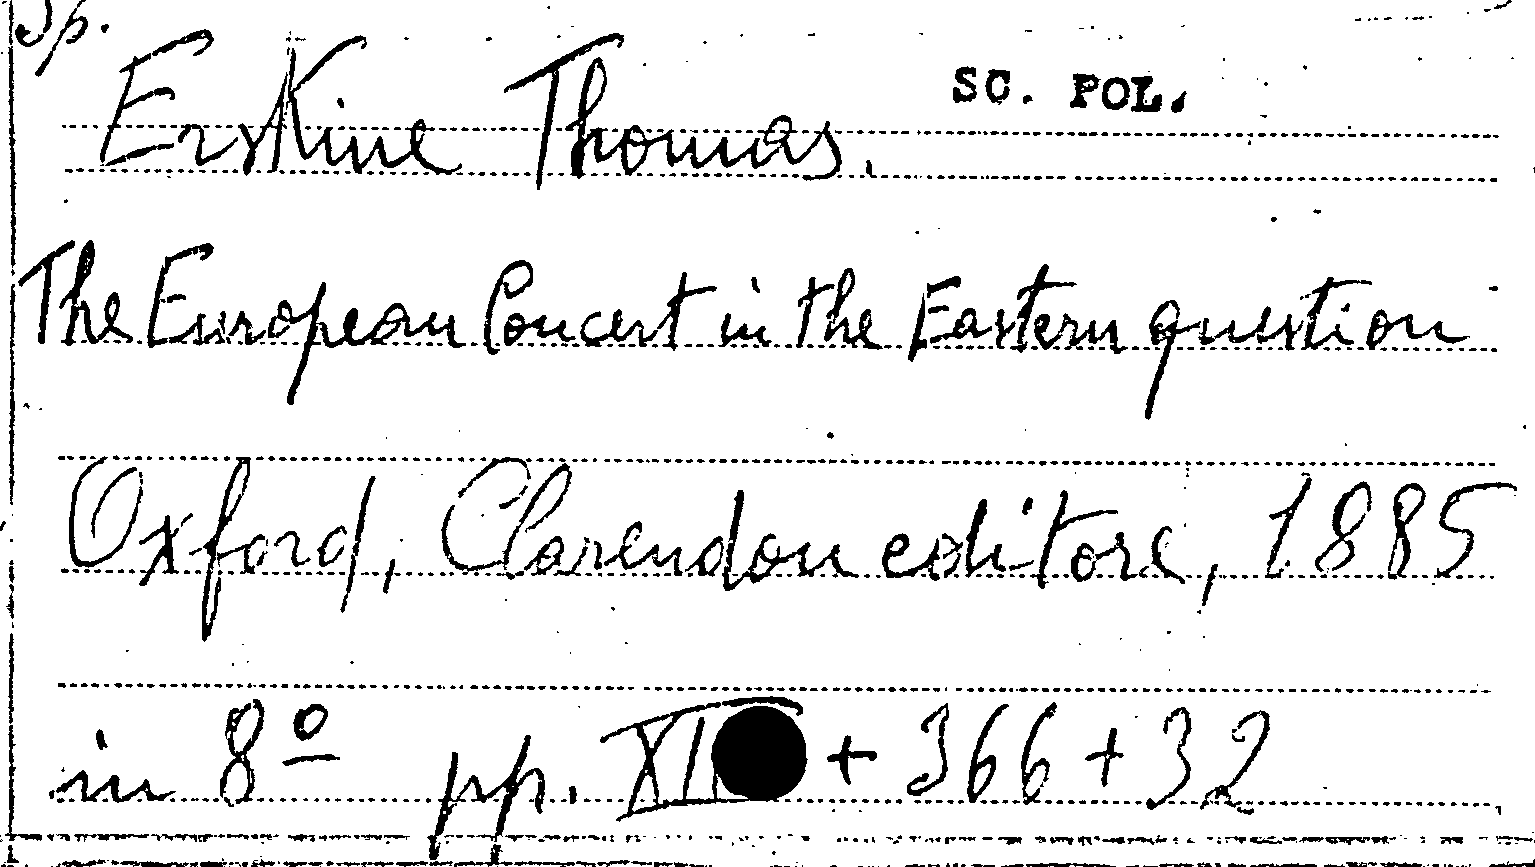 Sp.
SC. POL.
Erskine Thomas.
The European Concert in the Eastern question
Oxford, Clarendon editore, 1885
in 8º pp. + 366 + 32